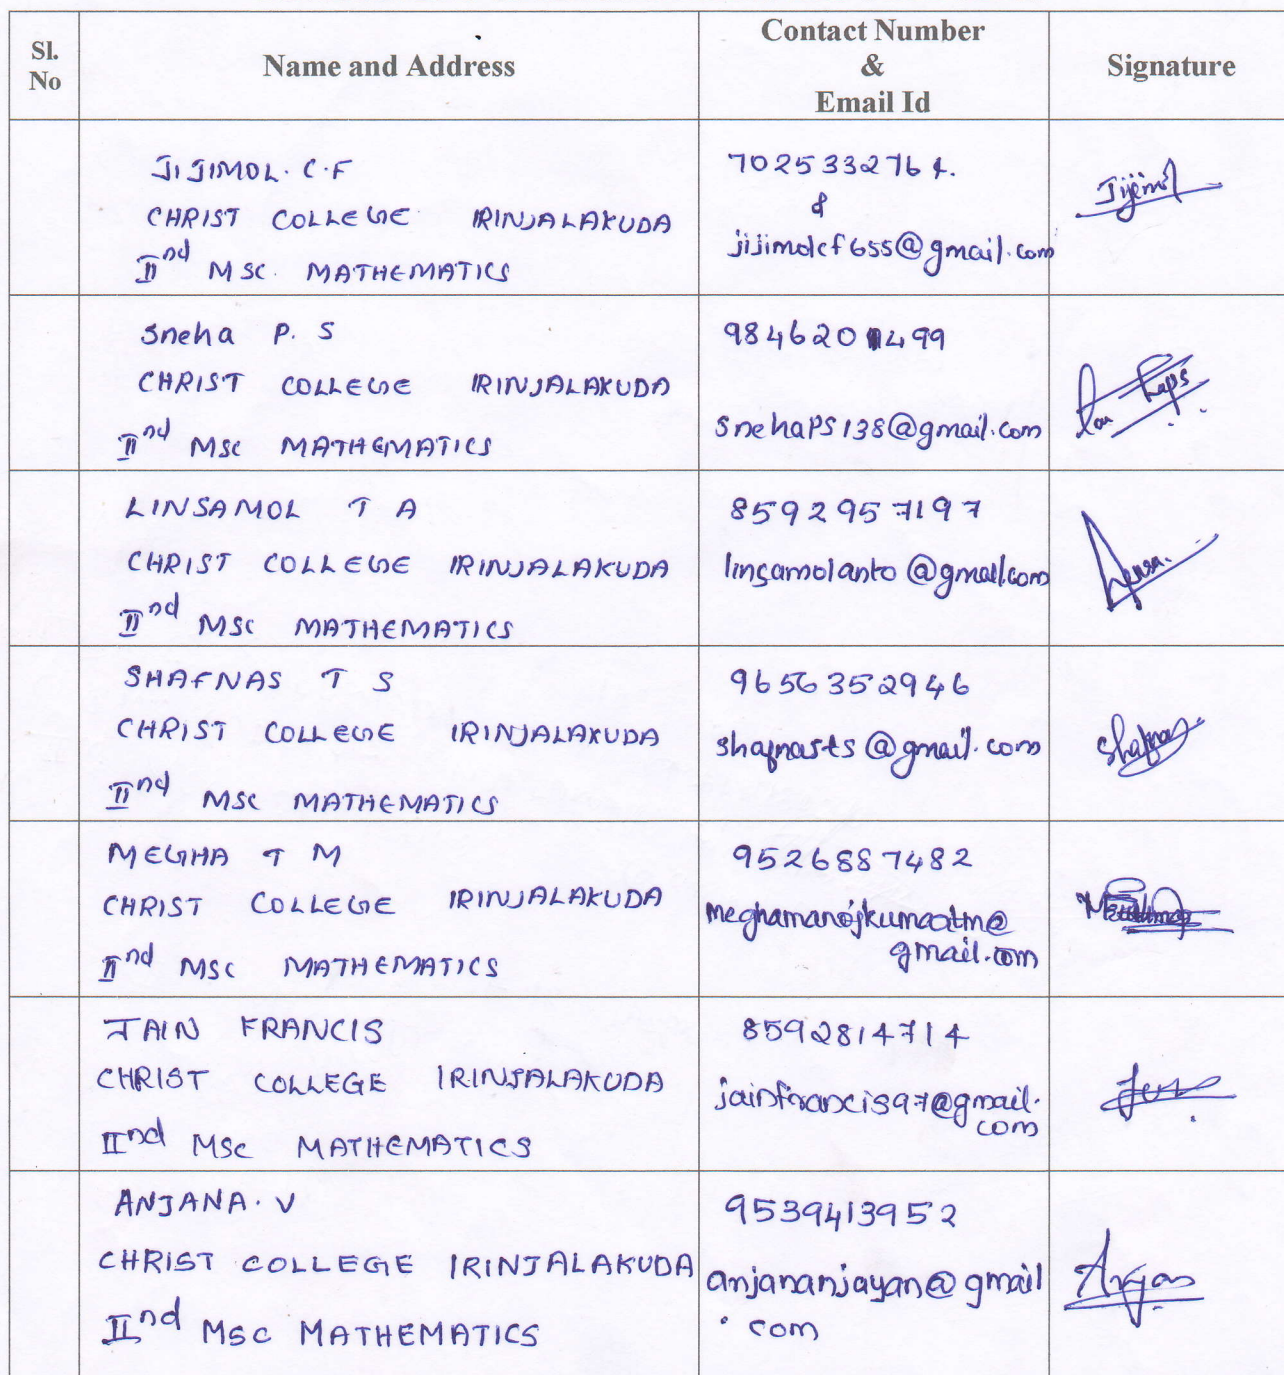 Sl. No
Name and Address
Contact Number
&
Email Id
Signature
JIJIMOL. C.F
CHRIST COLLEGE IRINJALAKUDA
IInd MSC. MATHEMATICS
7025332764.
&
jijimolcf655@gmail.com
Jijimol
Sneha P. S
CHRIST COLLEGE IRINJALAKUDA
IInd MSC MATHEMATICS
9846201499
snehaPS138@gmail.com
LINSAMOL T A
CHRIST COLLEGE IRINJALAKUDA
IInd MSC MATHEMATICS
8592957197
linsamolanto@gmail.com
SHAFNAS T S
CHRIST COLLEGE IRINJALAKUDA
IInd MSC MATHEMATICS
9656352946
shafnasts@gmail.com
Shafnas
MEGHA T M
CHRIST COLLEGE IRINJALAKUDA
IInd MSC MATHEMATICS
9526887482
meghamanojkumartm@
gmail.com
JAIN FRANCIS
CHRIST COLLEGE IRINJALAKUDA
IInd MSC MATHEMATICS
8592814714
jainfrancis97@gmail.
com
ANJANA. V
CHRIST COLLEGE IRINJALAKUDA
IInd MSC MATHEMATICS
9539413952
anjananjayan@gmail
.com